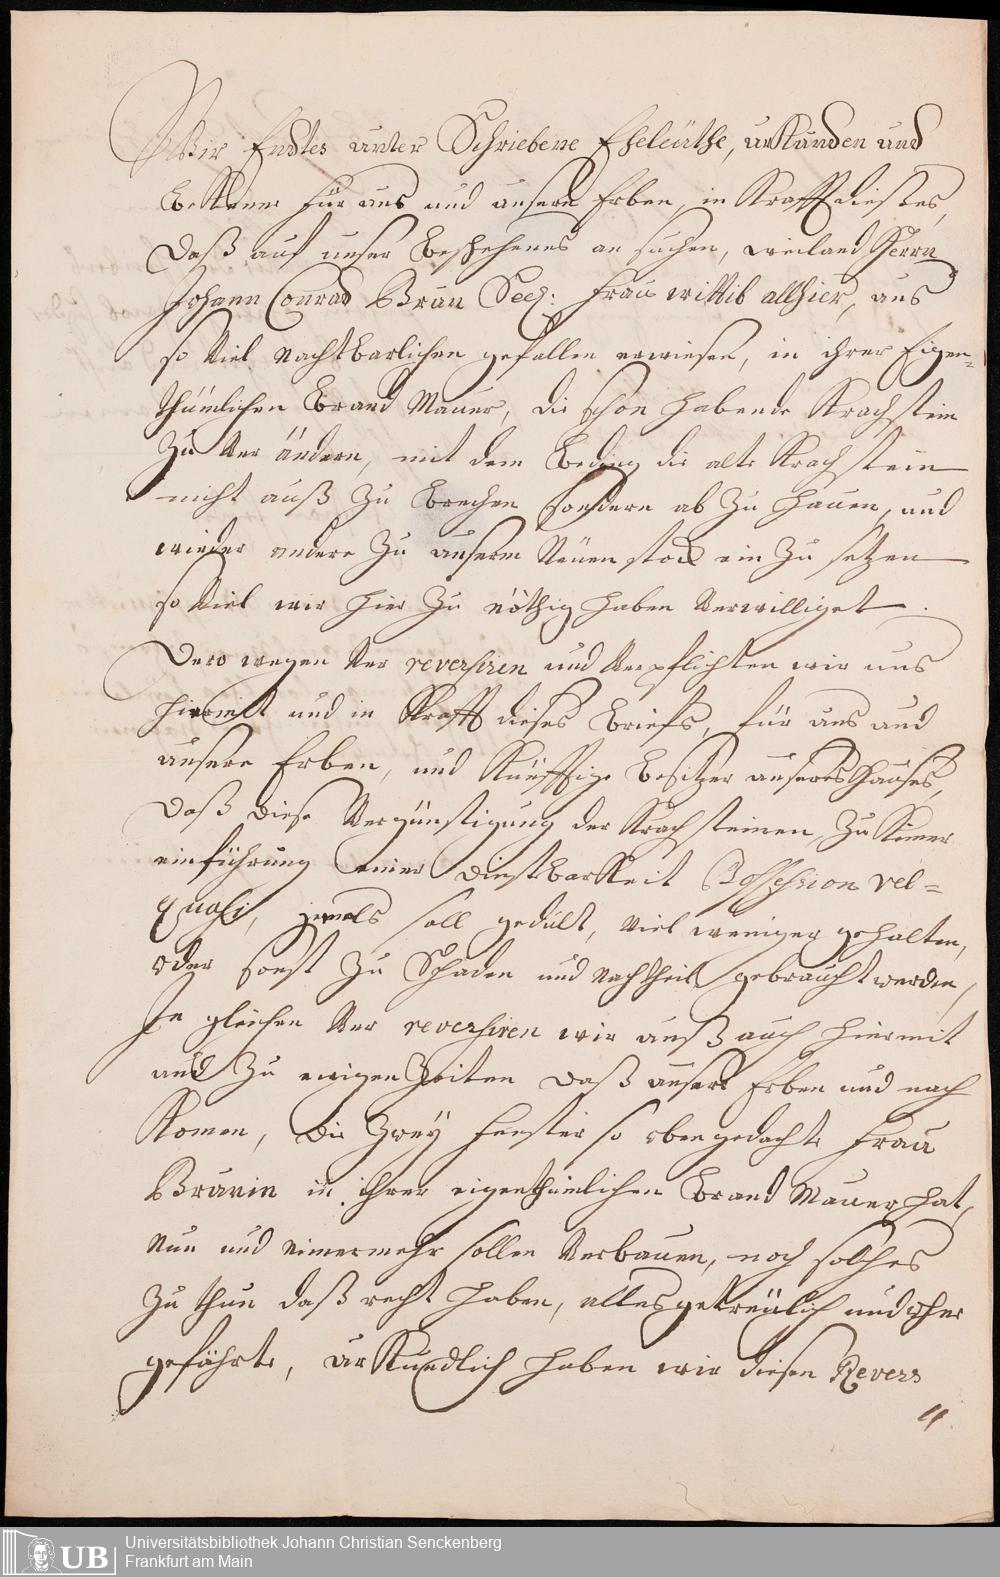 Wir Endtes unter Schriebene Eheleüthe, urkunden und
bekenne für uns und unsere Erben, in Krafft dießes,
Daß auf unser beschehenes an suchen, weiland Herrn
Johann Conrad Braun Seel: Frau wittib allhier, uns
so viel nachtbarlichen gefallen erwiesen, in ihrer Eigen-
thümlichen Brand Mauer, die schon habende Krachstein
Zu ver ändern, mit dem beding die alte Krachstein
nicht auß zu brechen sondern ab zu hauen, und
wieder andere zu unserm Neuen stock ein zu setzen
so viel wir hier zu nöthig haben verwilliget.
Dero wegen ver reversiren und verpflichten wir uns
hiermit und in Krafft dieses briefs, für uns und
unsere Erben, und Künfftige besitzer unsers Haußes,
Daß diese vergünstigung der Krachsteinen, zu Keiner
einführung einer dienstbarkeit Possession vel=
quasi, jemals soll gedült, viel weniger gehalten,
oder sonst zu Schaden und nachtheil gebraucht werden,
In gleichen ver reversiren wir unß auch hiermit
und zu ewigen Zeiten daß unsere Erben und nach
Komen, die Zwey Fenster so oben gedachte Frau
Braunin in ihrer eigenthümlichen Brand Mauer hat,
nun und nimermehr sollen verbauen, noch solches
zu thun daß recht haben, alles getreülich und ohne
gefährte, urkundlich haben wir diesen Revers
Universitätsbibliothek Johann Christian Senckenberg
Frankfurt am Main
UB